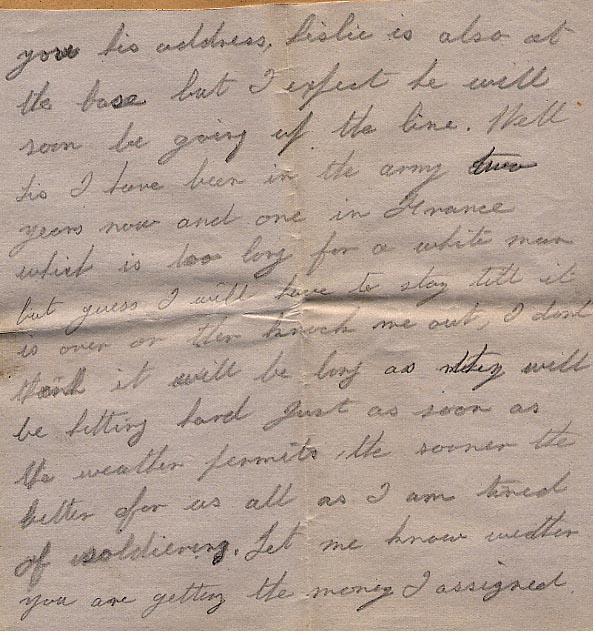 your his address, Leslie is also at
the base but I expect he will
soon be going up the line. Well
Lis I have been in the army two
years now and one in France
which is too long for a white man
but guess I will have to stay till it
is over or they knock me out, I dont
think it will be long as they will
be hitting hard just as soon as
the weather permits, the sooner the
better for us all as I am tired
of soldiering. Let me know wether
you are getting the money I assigned.